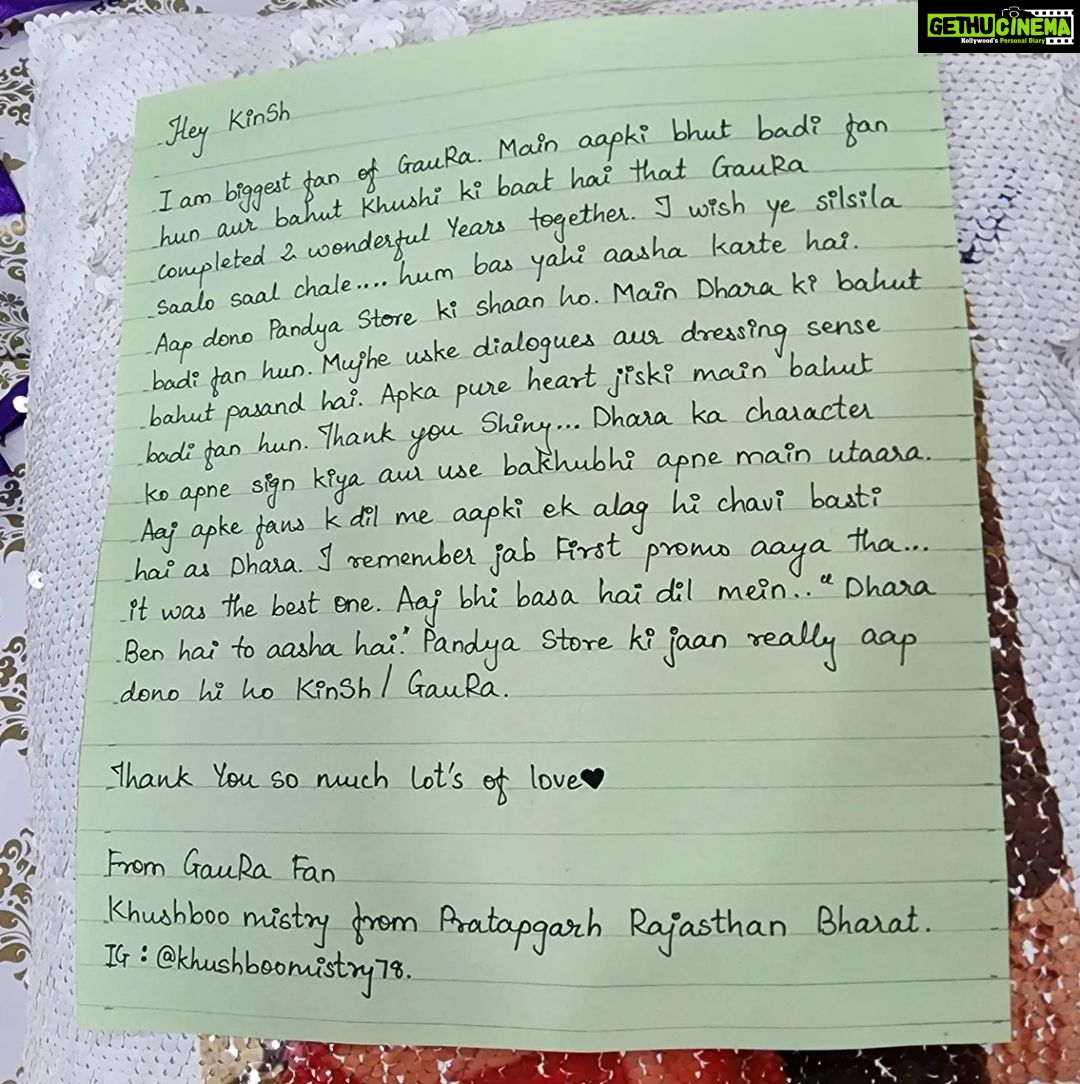 GETHUCINEMA
Kollywood's Personal Diary
Hey KinSh
I am biggest fan of GauRa. Main aapki bhut badi fan
hun aur bahut Khushi ki baat hai that GauRa
completed 2 wonderful Years together. I wish ye silsila
saalo saal chale.... hum bas yahi aasha karte hai.
Aap dono Pandya Store ki shaan ho. Main Dhara ki bahut
badi fan hun. Mujhe uske dialogues aur dressing sense
bahut pasand hai. Apka pure heart jiski main bahut
badi fan hun. Thank you Shiny... Dhara ka character
ko apne sign kiya aur use bakhubhi apne main utaara.
Aaj apke fans k dil me aapki ek alag hi chavi basti
hai as Dhara. I remember jab First promo aaya tha...
it was the best one. Aaj bhi basa hai dil mein.. “Dhara
Ben hai to aasha hai.” Pandya Store ki jaan really aap
dono hi ho KinSh / GauRa.
Thank You so much lot's of love♥
From GauRa Fan
Khushboo mistry from Pratapgarh Rajasthan Bharat.
IG : @khushboomistry78.